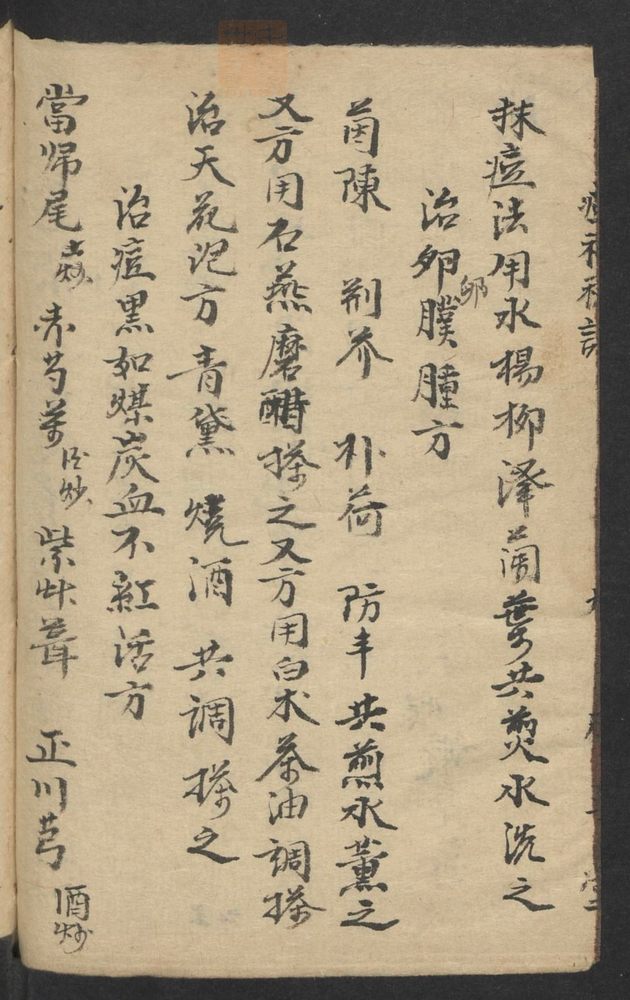 抹痘法用水楊柳澤蘭葉共煎水洗之
治卵膿腫方
卵
茵陳 荆芥 朴荷 防丰共煎水薰之
又方用石燕磨醋搽之又方用白术茶油調搽
治天花泡方青黛 燒酒 共調搽之
治痘黑如煤炭血不紅活方
當帰尾 土炒 赤芍葯 酒炒 紫艸茸 正川芎 酒炒